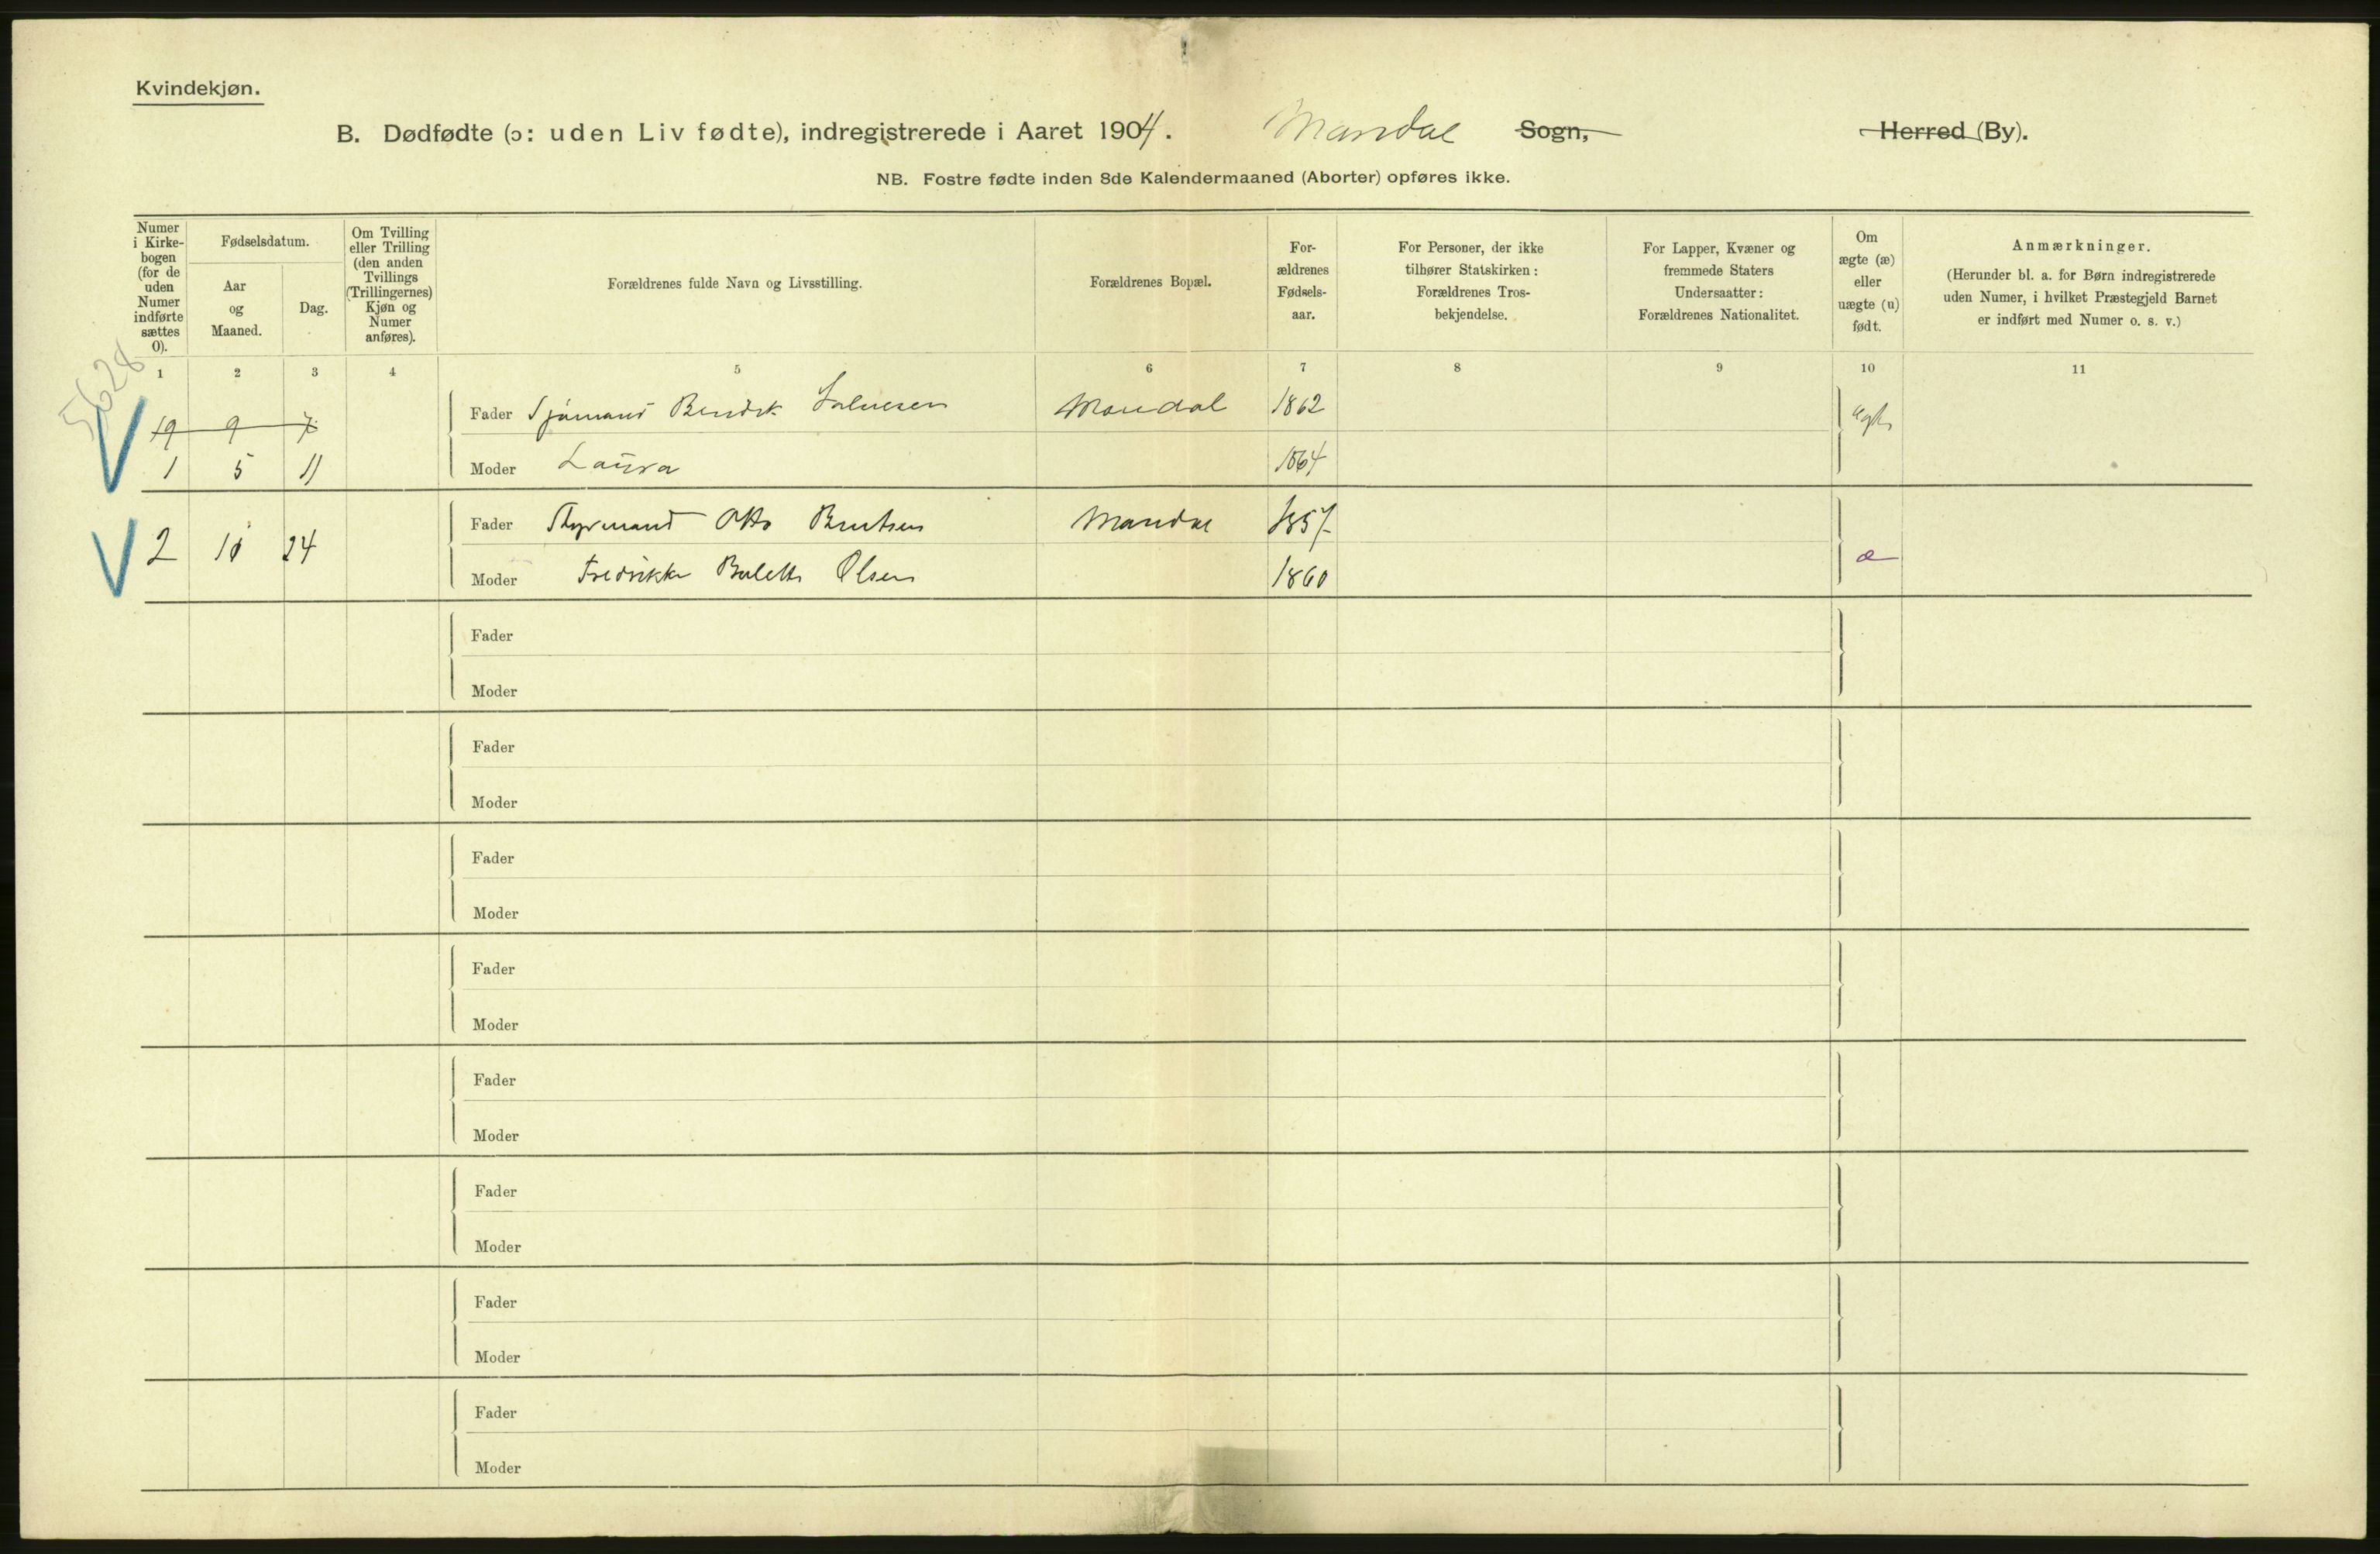 Kvindekjøn.
B. Dødfødte (ɔ: uden Liv fødte), indregistrerede i Aaret 1904. Mandal Sogn, Herred (By).
NB. Fostre fødte inden 8de Kalendermaaned (Aborter) opføres ikke.
Numer i Kirkebogen (for de uden Numer indførte sættes 0).
Fødselsdatum.
Aar og Maaned.
Dag.
Om Tvilling eller Trilling (den anden Tvillings (Trillingernes) Kjøn og Numer anføres).
Forældrenes fulde Navn og Livsstilling.
Forældrenes Bopæl.
For-ældrenes Fødsels-aar.
For Personer, der ikke tilhører Statskirken: Forældrenes Tros-bekjendelse.
For Lapper, Kvæner og fremmede Staters Undersaatter: Forældrenes Nationalitet.
Om ægte (æ) eller uægte (u) født.
Anmærkninger.
(Herunder bl. a. for Børn indregistrerede uden Numer, i hvilket Præstegjeld Barnet er indført med Numer o. s. v.)
5628
1 2 3 4 5 6 7 8 9 10 11
19 9 7 Fader Sjømand Bendik Salvesen Mandal 1862
1 5 11 Moder Laura 1864
Fader Styrmand Otto Berntsen Mandal 1857
2 10 24 æ
Moder Fredrikke Bolette Olsen 1860
Fader
Moder
Fader
Moder
Fader
Moder
Fader
Moder
Fader
Moder
Fader
Moder
Fader
Moder
Fader
Moder